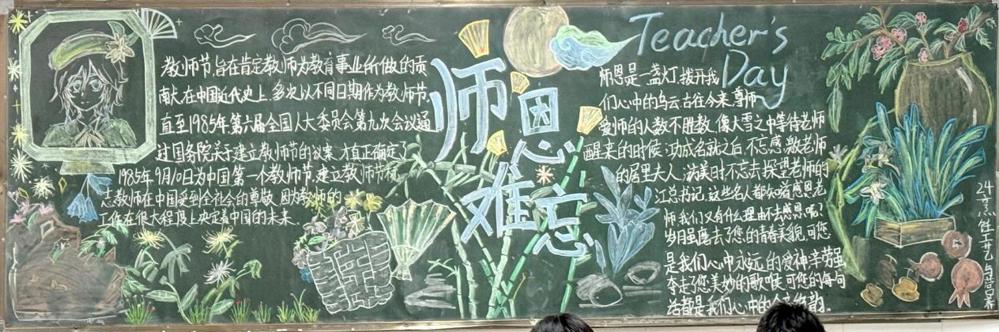 教师节,旨在肯定教师为教育事业所做的贡
献.在中国近代史上,多次以不同日期作为教师节.
直至1985年第六届全国人大委员会第九次会议通
过国务院关于建立教师节的议案,才真正确定了
1985年9月10日为中国第一个教师节.建立教师节标
志教师在中国受到全社会的尊敬.因为教师的
工作在很大程度上决定着中国的未来.
师恩难忘
Teacher's
Day
师恩是一盏灯,拨开我
们心中的乌云.古往今来,尊师
爱师的人数不胜数,像大雪之中等待老师
醒来的时候.功成名就之后不忘感数老师
的居里夫人.
江总书记.这些名人都知道感恩老
师,我们又有什么理由不去感恩呢?
岁月虽磨去了您的青春美貌,可您
是我们心中永远的爱神.辛劳虽
夺走了您美妙的歌喉,可您的每句
话都是我们心中的
24